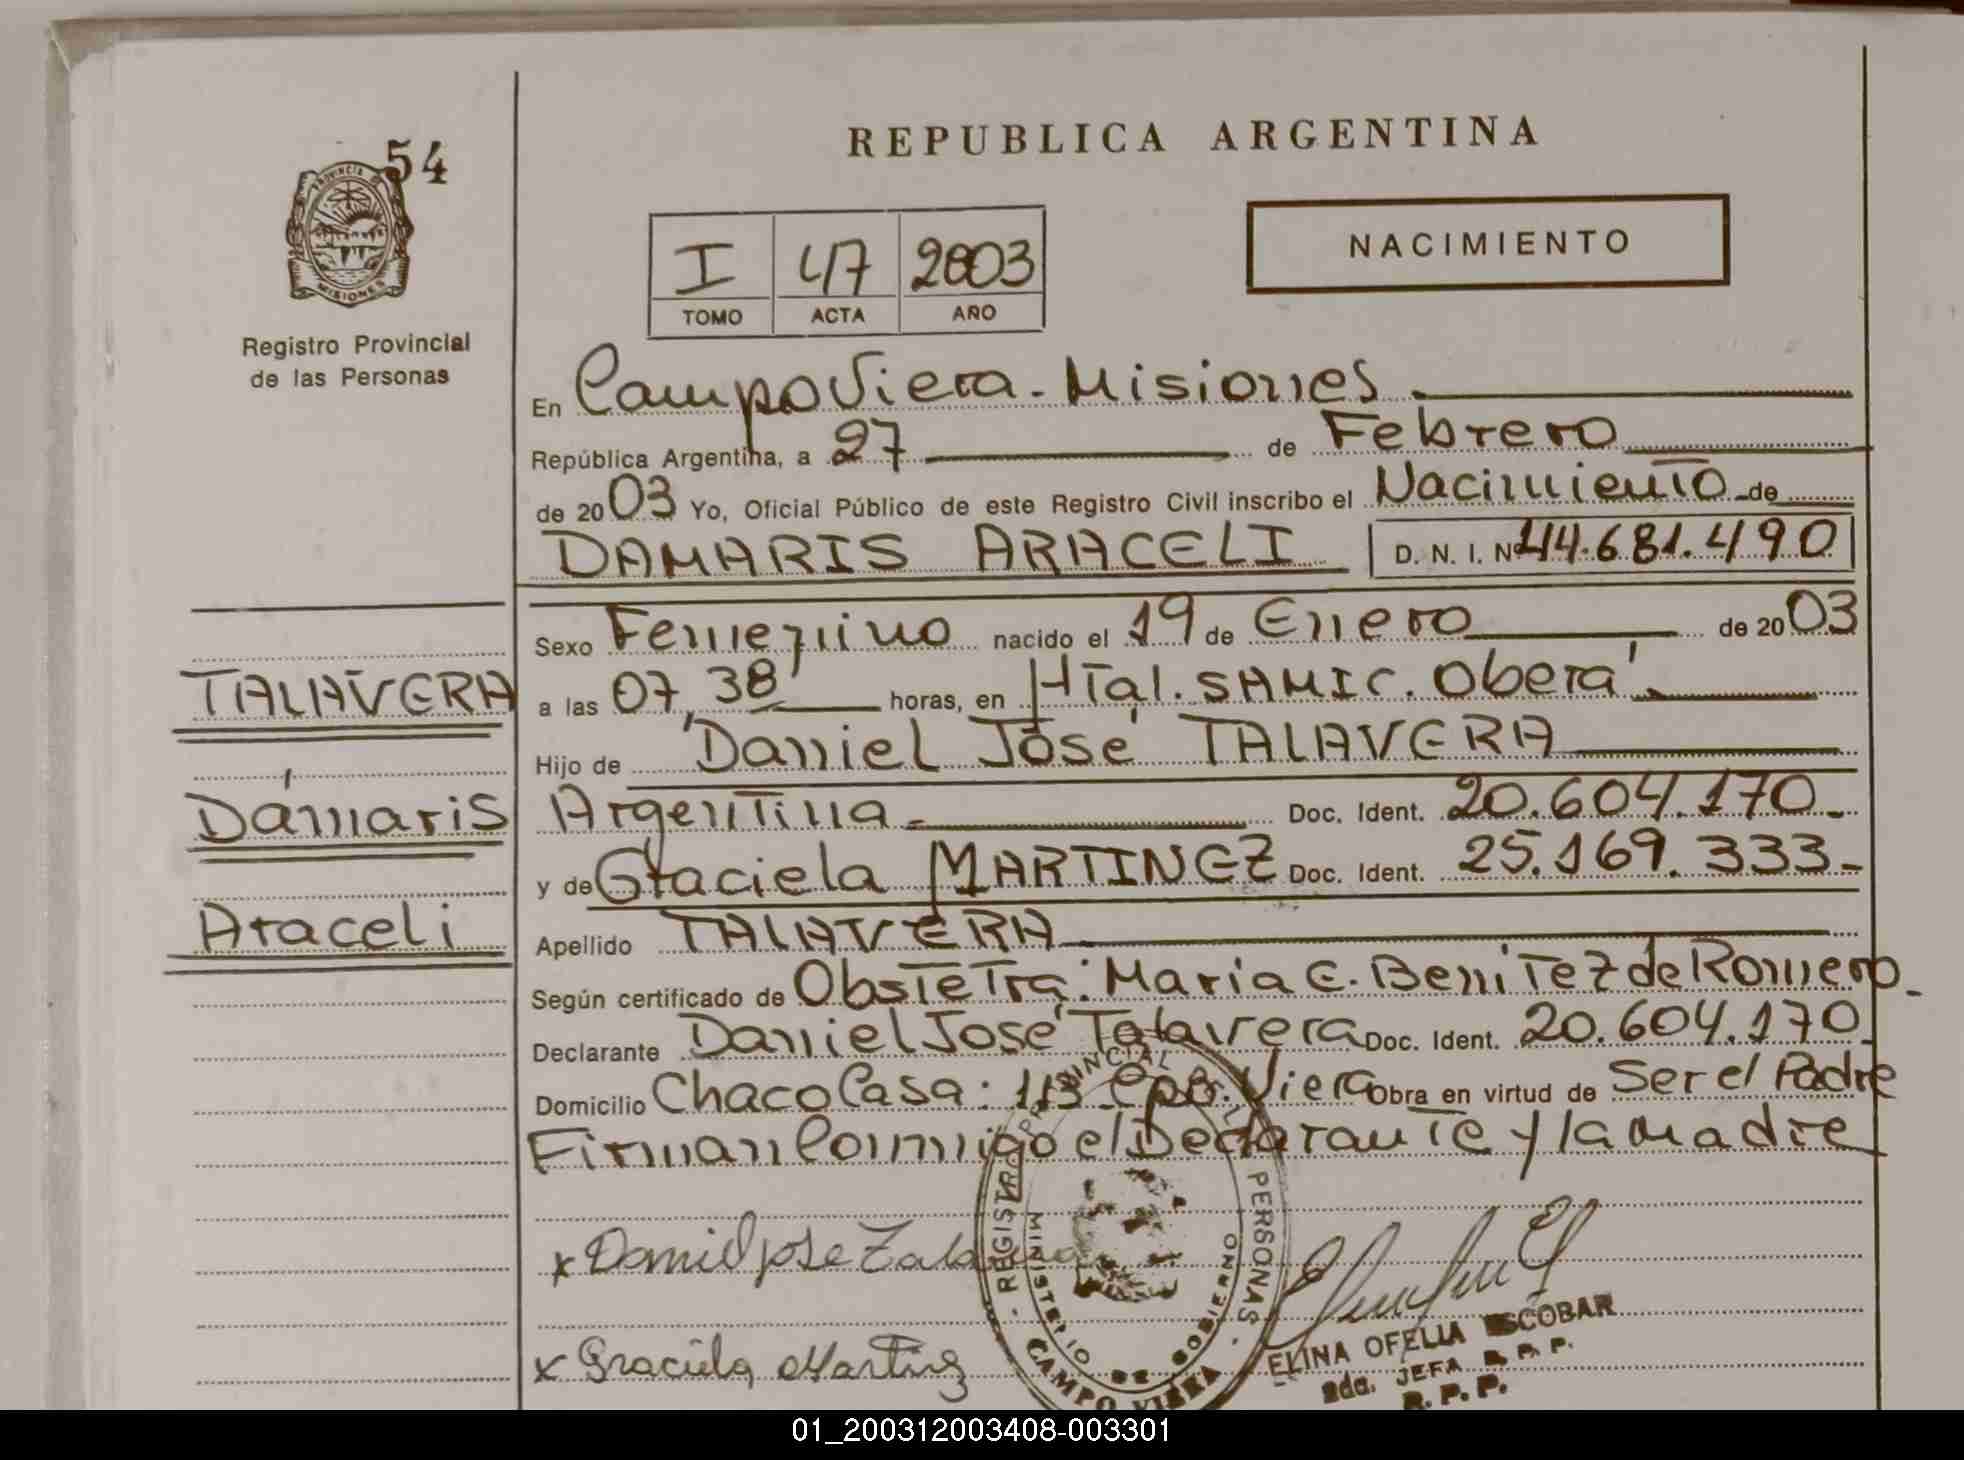 54
PROVINCIA DE
MISIONES
Registro Provincial
de las Personas
TALAVERA
Dámaris
Araceli
REPUBLICA ARGENTINA
NACIMIENTO
I 47 2003
TOMO ACTA AÑO
En Campo Viera - Misiones.
República Argentina, a 27 de Febrero
de 2003 Yo, Oficial Público de este Registro Civil inscribo el Nacimiento de
DAMARIS ARACELI D. N. I. Nº 44.681.490
Sexo Femenino nacido el 19 de Enero de 2003
a las 07,38' horas, en Htal. SAMIC. Oberá.
Hijo de Daniel José TALAVERA
Argentina.- Doc. Ident. 20.604.170-
y de Graciela MARTINEZ Doc. Ident. 25.169.333-
Apellido TALAVERA
Según certificado de Obstetra: Maria E. Benitez de Romero
Declarante Daniel José Talavera Doc. Ident. 20.604.170
Domicilio Chaco Casa: 113 Cpo. Viera Obra en virtud de Ser el Padre
Firman Conmigo el Declarante y la Madre
x Daniel Jose Talavera
x Graciela Martinez
REGISTRO PROVINCIAL DE LAS PERSONAS
MINISTERIO DE GOBIERNO
CAMPO VIERA
ELINA OFELIA ESCOBAR
2da. JEFA R. P. P.
R. P. P.
01_200312003408-003301